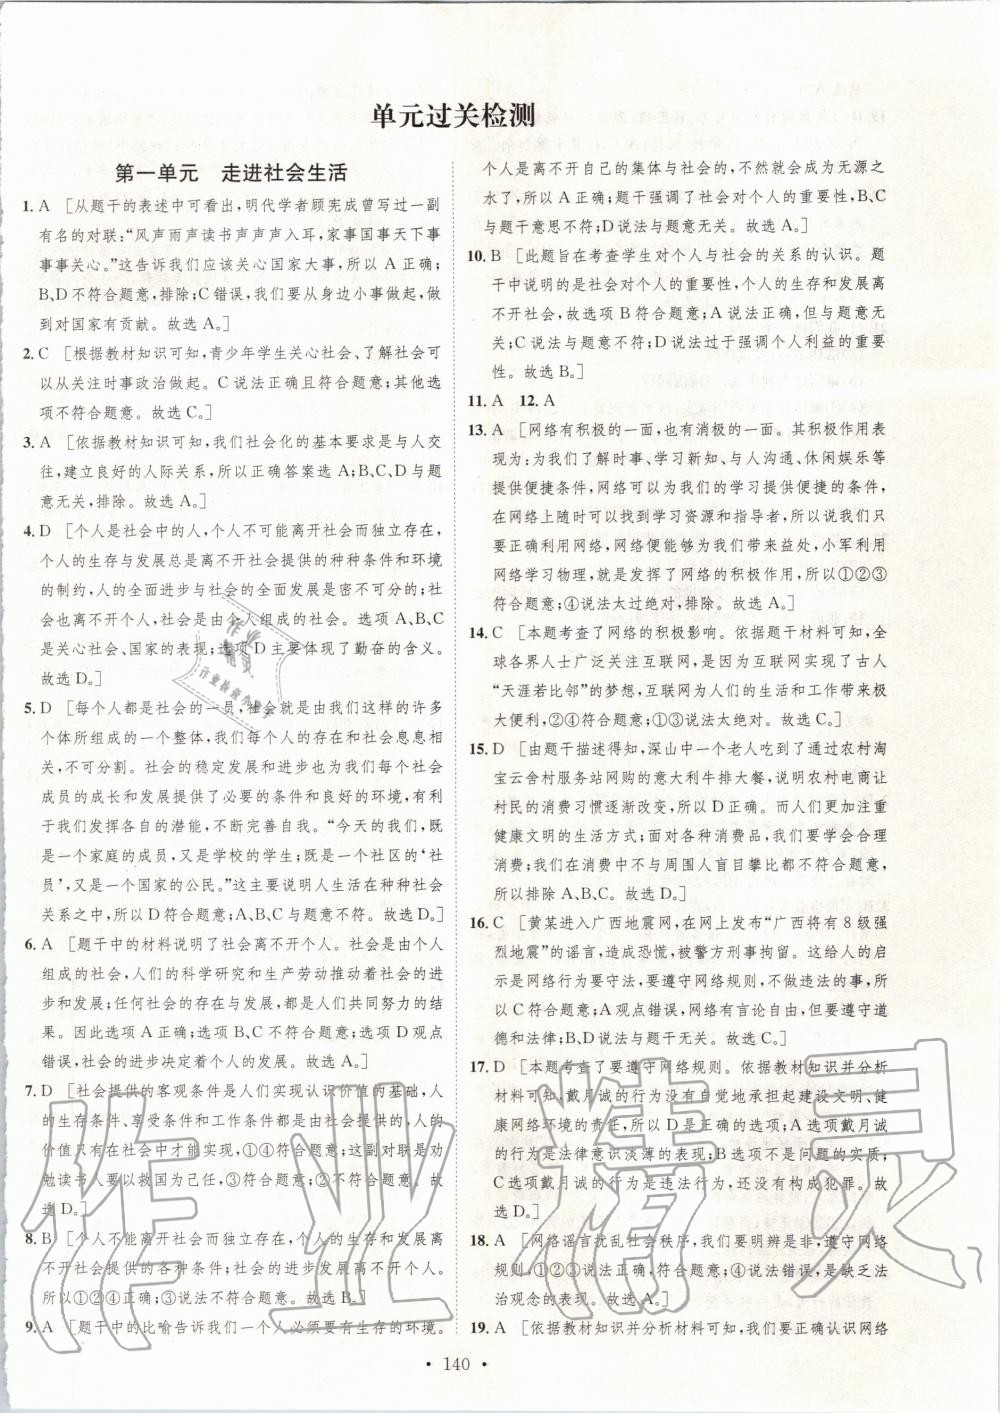 单元过关检测
第一单元　走进社会生活
1. A　[从题干的表述中可看出,明代学者顾宪成曾写过一副
有名的对联:“风声雨声读书声声声入耳,家事国事天下事
事事关心。”这告诉我们应该关心国家大事,所以 A 正确;
B、D 不符合题意,排除;C 错误,我们要从身边小事做起,做
到对国家有贡献。故选 A。]
2. C　[根据教材知识可知,青少年学生关心社会、了解社会可
以从关注时事政治做起。C 说法正确且符合题意;其他选
项不符合题意。故选 C。]
3. A　[依据教材知识可知,我们社会化的基本要求是与人交
往,建立良好的人际关系,所以正确答案选 A;B、C、D 与题
意无关,排除。故选 A。]
4. D　[个人是社会中的人,个人不可能离开社会而独立存在,
个人的生存与发展总是离不开社会提供的种种条件和环境
的制约,人的全面进步与社会的全面发展是密不可分的;社
会也离不开个人,社会是由个人组成的社会。选项 A、B、C
是关心社会、国家的表现;选项 D 主要体现了勤奋的含义。
故选 D。]
5. D　[每个人都是社会的一员,社会就是由我们这样的许多
个体所组成的一个整体,我们每个人的存在和社会息息相
关,不可分割。社会的稳定发展和进步也为我们每个社会
成员的成长和发展提供了必要的条件和良好的环境,有利
于我们发挥各自的潜能,不断完善自我。“今天的我们,既
是一个家庭的成员,又是学校的学生;既是一个社区的‘社
员’,又是一个国家的公民。”这主要说明人生活在种种社会
关系之中,所以 D 符合题意;A、B、C 与题意不符。故选 D。]
6. A　[题干中的材料说明了社会离不开个人。社会是由个人
组成的社会,人们的科学研究和生产劳动推动着社会的进
步和发展;任何社会的存在与发展,都是人们共同努力的结
果。因此选项 A 正确;选项 B、C 不符合题意;选项 D 观点
错误,社会的进步决定着个人的发展。故选 A。]
7. D　[社会提供的客观条件是人们实现认识价值的基础,人
的生存条件、享受条件和工作条件都是由社会提供的,人的
价值只有在社会中才能实现,①④符合题意;这副对联是劝
勉读书人要以救国为己任,③符合题意;②不符合题意。故
选 D。]
8. B　[个人不能离开社会而独立存在,个人的生存和发展离
不开社会提供的各种条件;社会的进步发展也离不开个人。
所以①②④正确;③说法不符合题意。故选 B。]
9. A　[题干中的比喻告诉我们一个人必须要有生存的环境。
个人是离不开自己的集体与社会的,不然就会成为无源之
水了,所以 A 正确;材料强调了社会对个人的重要性,B、C
与题干意思不符;D 说法与题意无关。故选 A。]
10. B　[此题旨在考查学生对个人与社会的关系的认识。题
干中说明的是社会对个人的重要性,个人的生存和发展离
不开社会,故选项 B 符合题意;A 说法正确,但与题意无
关;C 说法错误;D 说法过于强调个人利益的重要性。
性。故选 B。]
11. A　12. A
13. A　[网络有积极的一面,也有消极的一面。其积极作用表
现为:为我们了解时事、学习新知、与人沟通、休闲娱乐等
提供便捷条件,网络可以为我们的学习提供便捷的条件,
在网络上随时可以找到学习资源和指导者,所以说我们只
要正确利用网络,网络便能够为我们带来益处,小军利用
网络学习物理,就是发挥了网络的积极作用,所以①②③
符合题意;④说法太过绝对,排除。故选 A。]
14. C　[本题考查了网络的积极影响。依据题干材料可知,全
球各界人士广泛关注互联网,是因为互联网实现了古人
“天涯若比邻”的梦想,互联网为人们的生活和工作带来极
大便利,②④符合题意;①③说法太绝对。故选 C。]
15. D　[由题干描述得知,深山中一个老人吃到了通过农村淘
宝云舍村服务站网购的意大利牛排大餐,说明农村电商让
村民的消费习惯逐渐改变,所以 D 正确。而人们更加注重
健康文明的生活方式;面对各种消费品,我们要学会合理
消费;我们在消费中不与周围人盲目攀比都不符合题意,
所以排除 A、B、C。故选 D。]
16. C　[黄某进入广西地震网,在网上发布“广西将有 8 级强
烈地震”的谣言,造成恐慌,被警方刑事拘留。这给人的启
示是网络行为要守法,遵守网络规则,不做违法的事,所
以 C 符合题意;A 观点错误,网络有言论自由,但应遵守道
德和法律;B、D 说法与题干无关。故选 C。]
17. D　[本题考查了要遵守网络规则。依据教材知识并分析
材料可知,戴月诚的行为没有自觉地承担起建设文明、健
康网络环境的责任,所以 D 是正确的选项;A 选项戴月诚
的行为是法律意识淡薄的表现;B 选项不是问题的实质;
C 选项戴月诚的行为是违法行为,还没有构成犯罪。故
选 D。]
18. A　[网络谣言扰乱社会秩序,我们要明辨是非,遵守网络
规则,①②③符合题意,正确;④说法错误,是缺乏法
治观念的表现。故选 A。]
19. A　[依据教材知识并分析材料可知,我们要正确认识网络
• 140 •
作业精灵